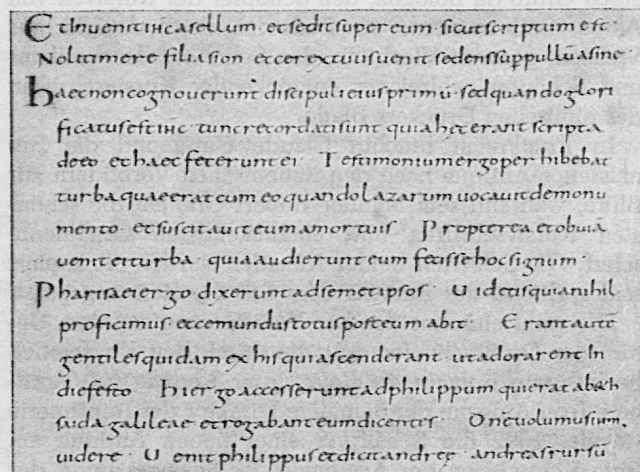 Et Invenit ihc asellum · et sedit super eum · sicut scriptum est ·
Noli timere filia sion · ecce rex tuus uenit sedens sup pullū asine ·
haec non cognouerunt discipuli eius primū · sed quando glori
ficatus est ihc · tunc recordati sunt quia hęc erant scripta
de eo · et haec fecerunt ei Testimonium ergo perhibebat
turba quae erat cum eo quando lazarum uocauit de monu
mento · et suscitauit eum a mortuis Propterea et obuiā
uenit ei turba · quia audierunt eum fecisse hoc signum ·
Pharisaei ergo dixerunt ad semetipsos · Uidetis quia nihil
proficimus · ecce mundus totus post eum abit · Erant autē
gentiles quidam ex his qui ascenderant · ut adorarent In
die festo hi ergo accesserunt ad philippum qui erat a b&h
saida galilaeae · et rogabant eum dicentes · Dne uolumus ihm
uidere · Uenit philippus et dicit andreę · andreas rursū